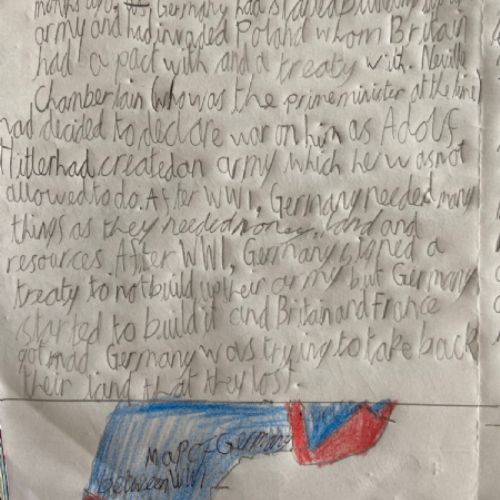 months ago. Germany had started building up an
army and had invaded Poland whom Britain
had a pact with and a treaty with. Neville
Chamberlain who was the prime minister at the time
had decided to declare war on him as Adolf
Hitler had created an army which he was not
allowed to do. After WW1, Germany needed many
things as they needed money, land and
resources. After WW1, Germany signed a
treaty to not build up their army but Germany
started to build it and Britain and France
got mad. Germany was trying to take back
their land that they lost.
Map of Germany
between WW1